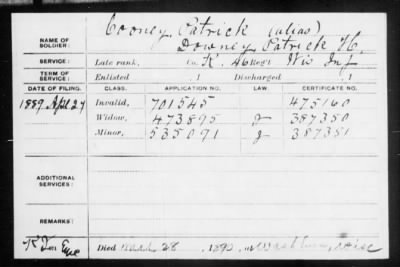 Cooney, Patrick (alias)
NAME OF SOLDIER: Downey, Patrick H.
SERVICE: Late rank, Co. K. 46 Reg't Wis Inf
TERM OF SERVICE: Enlisted , 1 Discharged , 1
DATE OF FILING. CLASS. APPLICATION NO. LAW. CERTIFICATE NO.
1889 Apl 27 Invalid, 701545 475160
Widow, 473895 J 387350
Minor, 535091 J 387351
ADDITIONAL SERVICES:
REMARKS:
Died March 28, 1890, in Washburn, Wisc